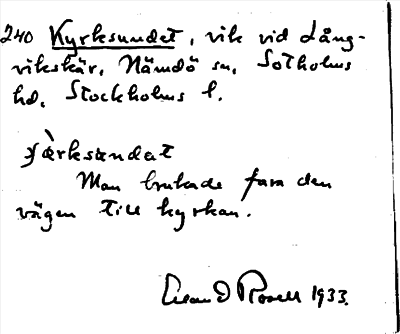 240 Kyrksundet, vik vid Lång-
vikskär, Nämdö sn, Sotholms
hd, Stockholms l.
Man brukade fara den
vägen till kyrkan.
Rosell 1933.